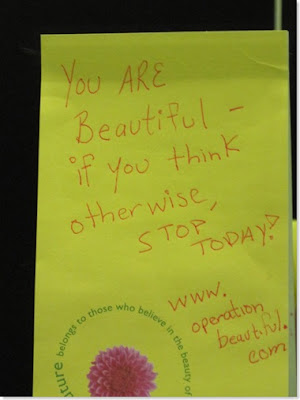 You ARE
Beautiful –
if you think
otherwise,
STOP
TODAY!
www.
operation
beautiful.
com
uture belongs to those who believe in the beauty of